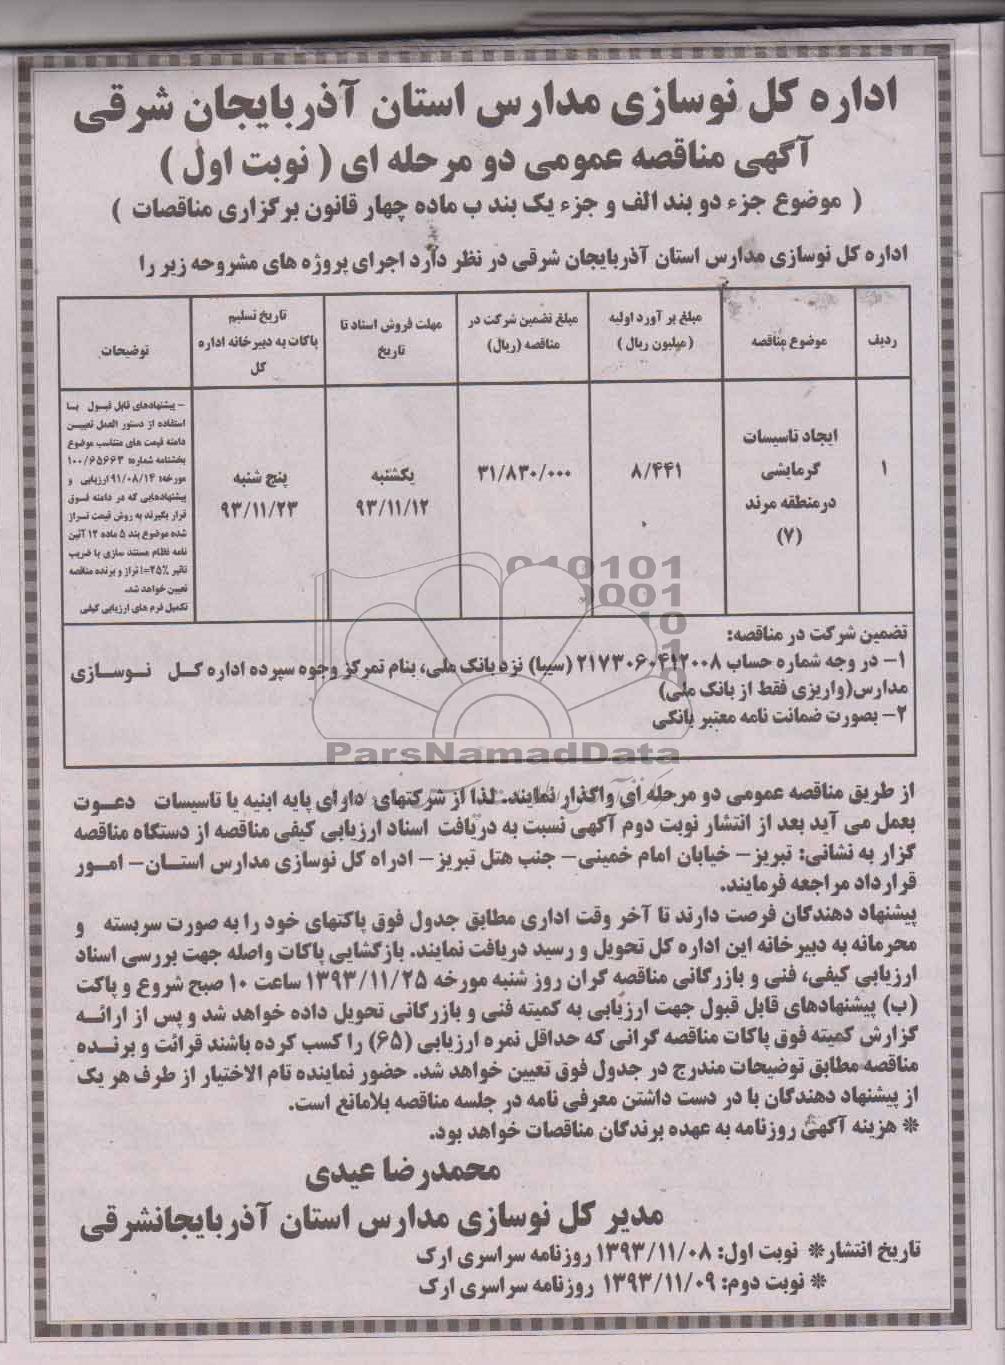 اداره کل نوسازی مدارس استان آذربایجان شرقی
آگهی مناقصه عمومی دو مرحله ای ( نوبت اول )
( موضوع جزء دو بند الف و جزء یک بند ب ماده چهار قانون برگزاری مناقصات )
اداره کل نوسازی مدارس استان آذربایجان شرقی در نظر دارد اجرای پروژه های مشروحه زیر را
ردیف
موضوع مناقصه
مبلغ بر آورد اولیه
(میلیون ریال )
مبلغ تضمین شرکت در
مناقصه (ریال)
مهلت فروش اسناد تا
تاریخ
تاریخ تسلیم
پاکات به دبیرخانه اداره
کل
توضیحات
۱
ایجاد تاسیسات
گرمایشی
در منطقه مرند
(۷)
۸/۴۴۱
۳۱/۸۳۰/۰۰۰
یکشنبه
۹۳/۱۱/۱۲
پنج شنبه
۹۳/۱۱/۲۳
– پیشنهادهای قابل قبول با
استفاده از دستور العمل تعیین
دامنه قیمت های متناسب موضوع
بخشنامه شماره: ۱۰۰/۶۵۶۶۳
مورخه: ۹۱/۰۸/۱۴ ارزیابی و
پیشنهادهایی که در دامنه فوق
قرار بگیرند به روش قیمت تراز
شده موضوع بند ۵ ماده ۱۲ آئین
نامه نظام مستند سازی با ضریب
تاثیر ۲۵%=I تراز و برنده مناقصه
تعیین خواهد شد.
تکمیل فرم های ارزیابی کیفی
تضمین شرکت در مناقصه:
۱- در وجه شماره حساب ۲۱۷۳۰۶۰۴۱۲۰۰۸ (سیبا) نزد بانک ملی، بنام تمرکز وجوه سپرده اداره کل نوسازی
مدارس(واریزی فقط از بانک ملی)
۲- بصورت ضمانت نامه معتبر بانکی
ParsNamadData
از طریق مناقصه عمومی دو مرحله ای واگذار نمایند. لذا از شرکتهای دارای پایه ابنیه یا تاسیسات دعوت
بعمل می آید بعد از انتشار نوبت دوم آگهی نسبت به دریافت اسناد ارزیابی کیفی مناقصه از دستگاه مناقصه
گزار به نشانی: تبریز- خیابان امام خمینی- جنب هتل تبریز- ادراه کل نوسازی مدارس استان- امور
قرارداد مراجعه فرمایند.
پیشنهاد دهندگان فرصت دارند تا آخر وقت اداری مطابق جدول فوق پاکتهای خود را به صورت سربسته و
محرمانه به دبیرخانه این اداره کل تحویل و رسید دریافت نمایند. بازگشایی پاکات واصله جهت بررسی اسناد
ارزیابی کیفی، فنی و بازرگانی مناقصه گران روز شنبه مورخه ۱۳۹۳/۱۱/۲۵ ساعت ۱۰ صبح شروع و پاکت
(ب) پیشنهادهای قابل قبول جهت ارزیابی به کمیته فنی و بازرگانی تحویل داده خواهد شد و پس از ارائه
گزارش کمیته فوق پاکات مناقصه گرانی که حداقل نمره ارزیابی (۶۵) را کسب کرده باشند قرائت و برنده
مناقصه مطابق توضیحات مندرج در جدول فوق تعیین خواهد شد. حضور نماینده تام الاختیار از طرف هر یک
از پیشنهاد دهندگان با در دست داشتن معرفی نامه در جلسه مناقصه بلامانع است.
* هزینه آگهی روزنامه به عهده برندگان مناقصات خواهد بود.
محمدرضا عیدی
مدیر کل نوسازی مدارس استان آذربایجانشرقی
تاریخ انتشار* نوبت اول: ۱۳۹۳/۱۱/۰۸ روزنامه سراسری ارک
* نوبت دوم: ۱۳۹۳/۱۱/۰۹ روزنامه سراسری ارک